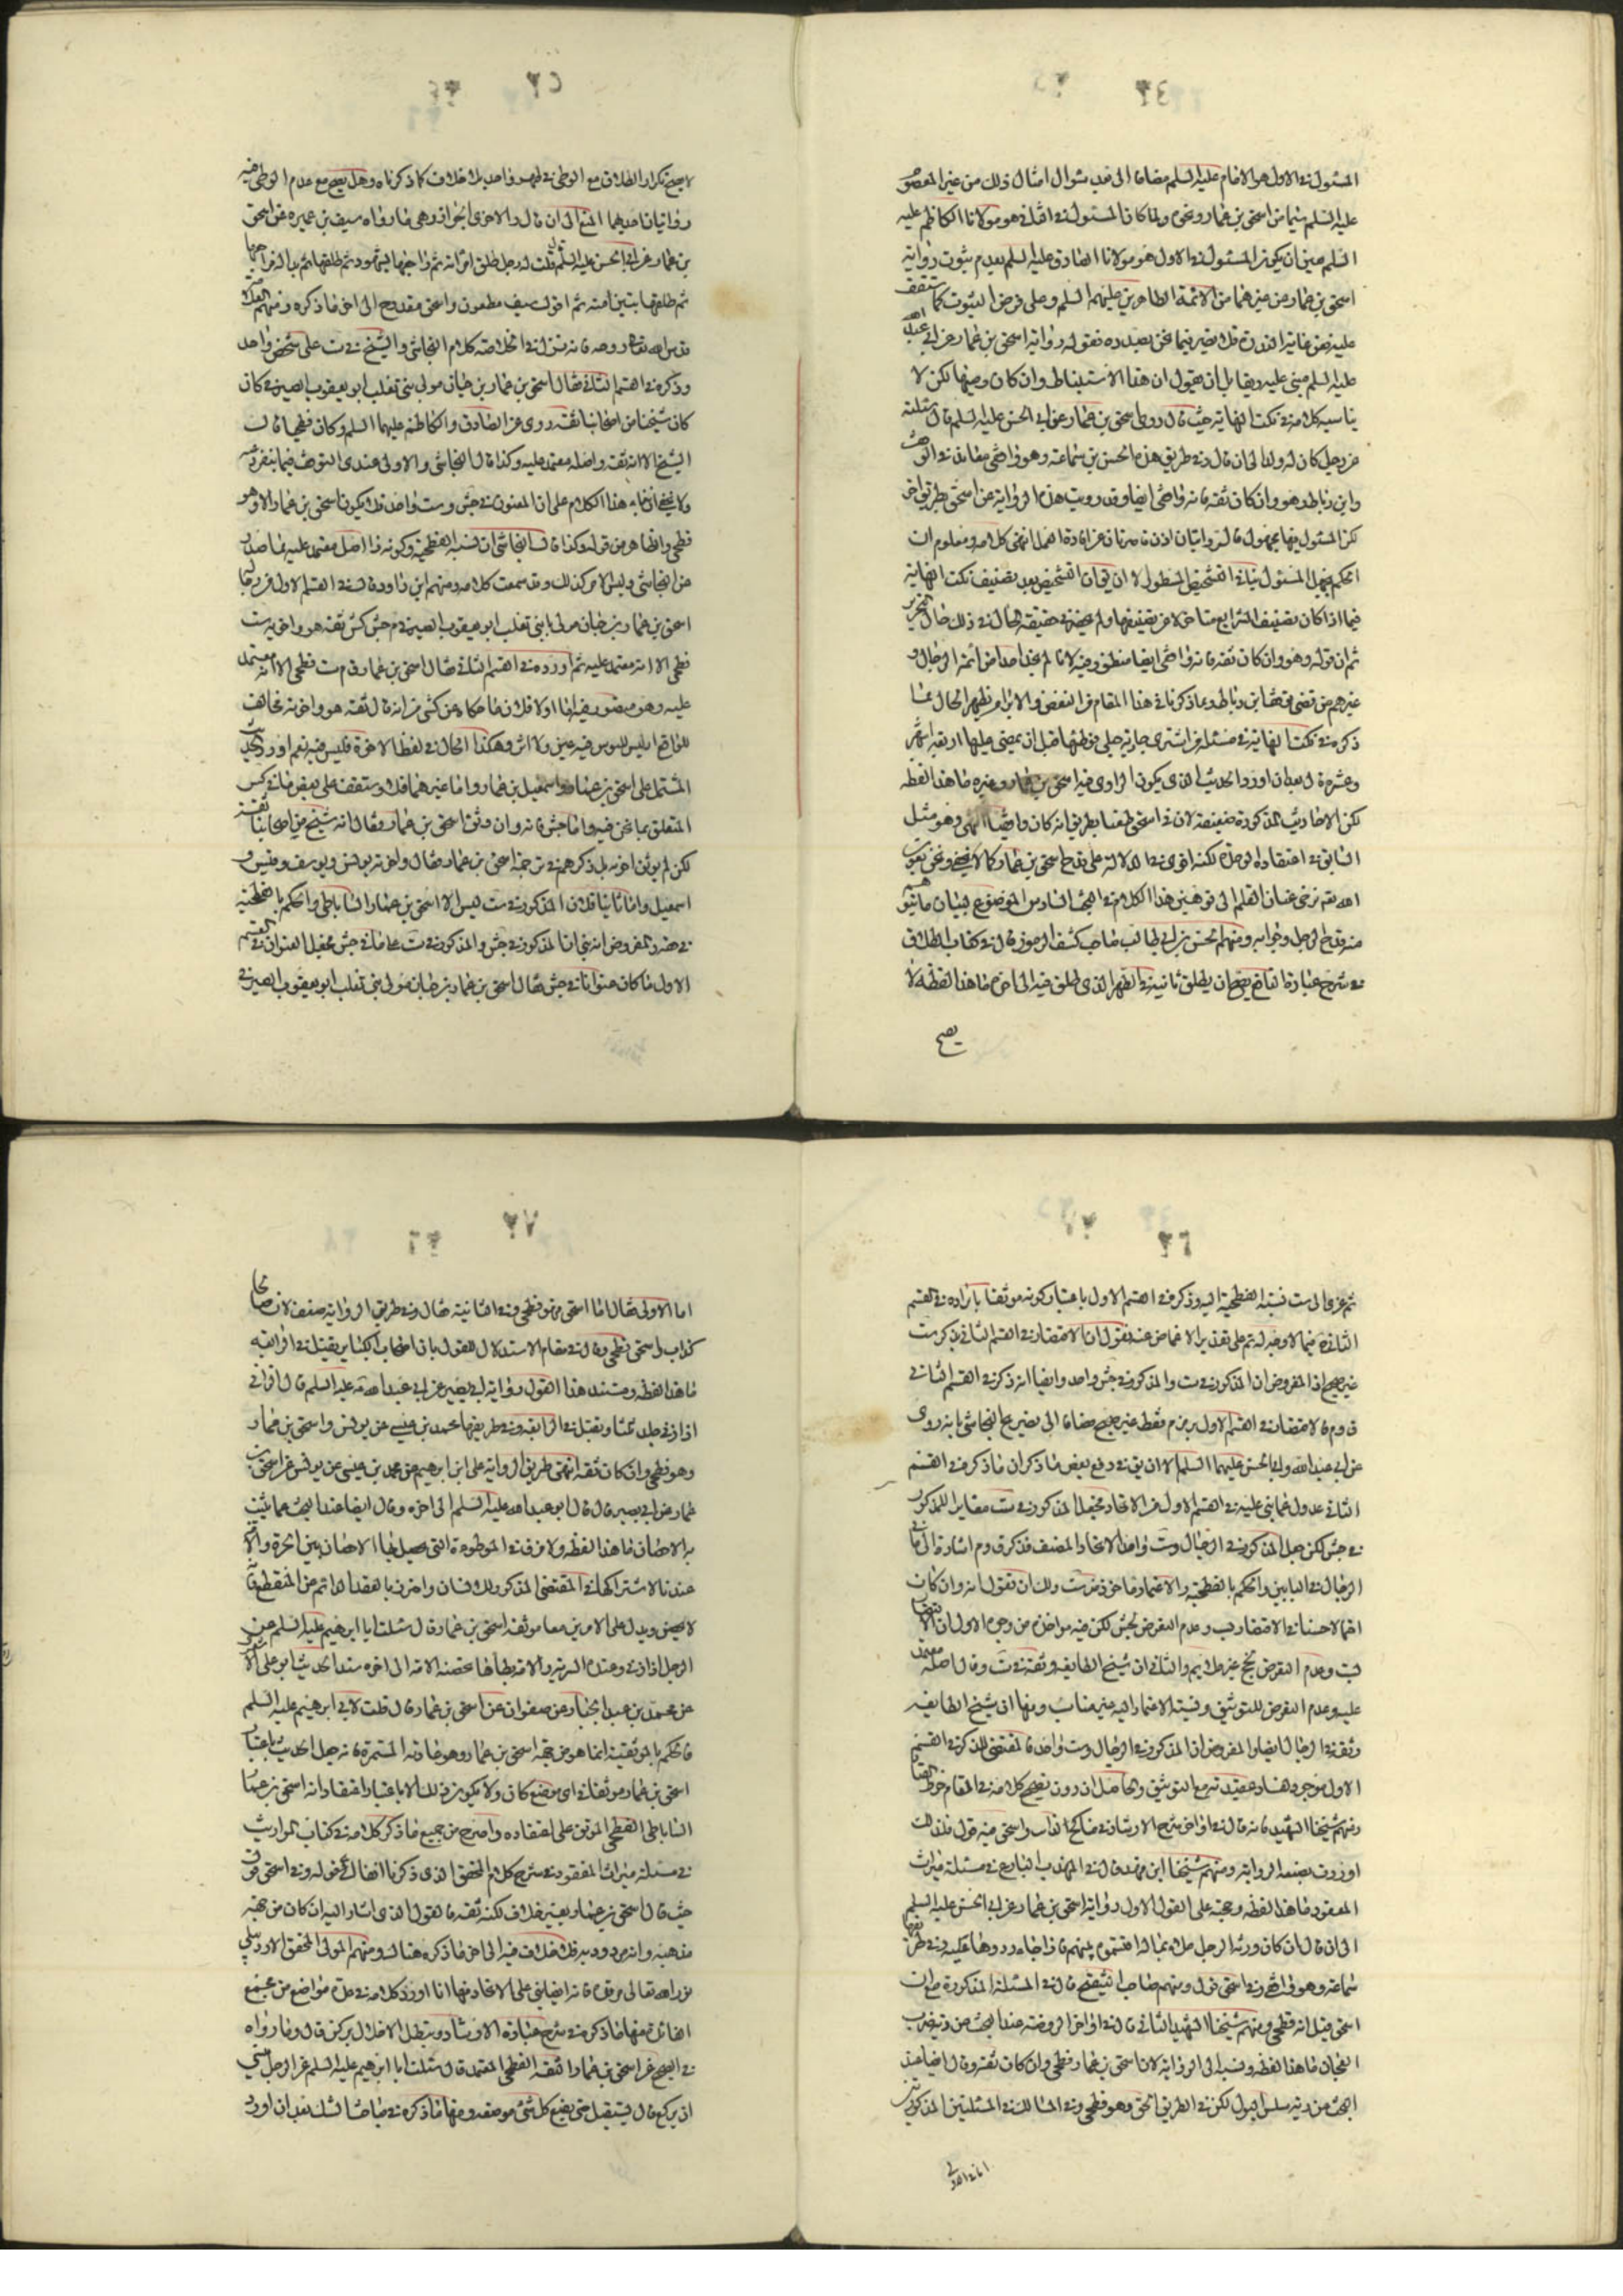 المسئول في الاول هو الامام عليه السلم مضافا الى بعد سؤال امثال ذلك من غير المعصوم
عليه السلم سيما من اسحق بن عمار ونحوه ولما كان المسئول في الثاني هو مولانا الكاظم عليه
السلم تعين ان يكون المسئول في الاول هو مولانا الصادق عليه السلم لعدم ثبوت رواية
اسحق بن عمار عن غيرهما من الائمة الطاهرين عليهم السلم وعلى فرض الثبوت كما ستقف
عليه ففي غاية الندرة فلا يضر فيما نحن بصدده فقوله رواية اسحق بن عمار عن ابي عبدالله
عليه السلم مبني عليه ولقائل ان يقول ان هذا الاستنباط وان كان وجيها لكن لا
يناسبه كلامه في نكت النهاية حيث قال روى اسحق بن عمار عن ابي الحسن عليه السلم قال سئلته
عن رجل كان له ولد الى ان قال وفي طريق هذه الحسن بن سماعة وهو واقفي
وابن رباط وهو وان كان ثقة فانه واقفي ايضا وقد رويت هذه الرواية عن اسحق بطريق اخر
لكن المسئول فيها مجهول فالروايتان اذن قاصرتان عن افادة العمل انتهى كلامه ومعلوم ان
الحكم بجهل المسئول ينافي التشخيص المسطور الا ان يق ان التشخيص بعد تصنيف نكت النهاية
فيما اذا كان تصنيف الشرايع متاخرا عن تصنيفها ولم يحضرني حقيقة الحال في ذلك حال التحرير
ثم ان قوله وهو وان كان ثقة فانه واقفي ايضا منظور فيه لانا لم نجد احدا من ائمة الرجال و
غيرهم من تفضي بوقف ابن رباط وبما ذكرنا في هذا المقام من النقض والابرام يظهر الحال فيما
ذكره في نكت النهاية في مسئلة من اشترى جارية حبلى فوطئها قبل ان يمضي عليها اربعة اشهر
وعشرة ايام بعد ان اورد الحديث الذي يكون الراوي فيه اسحق بن عمار وغيره ما هذا لفظه
لكن الاحاديث المذكورة ضعيفة لان في اسحق طعنا بطريق انه كان واقفيا انتهى وهو مثل
السابق في اعتقاده الوحدة لكنه اقوى في الدلالة على قدح اسحق بن عمار كما لا يخفى ونحن بعون
الله تعالى نرخي عنان القلم الى توهين هذا الكلام في البحث السادس الموضوع لبيان ما نتوهم
منه قدح الرجل وجوابه ومنهم الحسن بن ابي طالب صاحب كشف الرموز قال في كتاب الطلاق
في شرح عبارة النافع يصح ان يطلق ثانية في الطهر الذي طلق فيه الى اخره ما هذا لفظه لا
يصح
لا يصح تكرار الطلاق مع الوطي في طهر واحد بلا خلاف كما ذكرناه وهل يصح مع عدم الوطي فيه
روايتان احديهما المنع الى ان قال والاخرى الجواز وهي ما رواه سيف بن عميرة عن اسحق
بن عمار عن ابي الحسن عليه السلم قال قلت له رجل طلق امراته ثم راجعها بشهود ثم طلقها ثم بدا له فراجعها
ثم طلقها تبين منه ثم اقول سيف مطعون واسحق مقدوح الى اخر ما ذكره ومنهم العلامة
قدس الله تعالى روحه فانه نزل في الخلاصة كلام النجاشي والشيخ في ست على شخص واحد
وذكره في القسم الثاني فقال اسحق بن عمار بن حيان مولى بني تغلب ابو يعقوب الصيرفي كان
كان شيخا من اصحابنا ثقة روى عن الصادق والكاظم عليهما السلم وكان فطحيا قال
الشيخ الا انه ثقة واصله معتمد عليه وكذا قال النجاشي والاولى عندي التوقف فيما ينفرد به
ولا يخفى ان بناء هذا الكلام على ان المعنون في جش وست واحد فلا يكون اسحق بن عمار الا وهو
فطحي والظاهر من قوله وكذا قال النجاشي ان نسبة الفطحية وكونه ذا اصل معتمد عليه مما صدر
عن النجاشي وليس الامر كذلك وقد سمعت كلامه ومنهم ابن داود قال في القسم الاول من رجاله
اسحق بن عمار بن حيان مولى بني تغلب ابو يعقوب الصيرفي م جش كش ثقة هو واخوته ست
فطحي الا انه معتمد عليه ثم اورده في القسم الثاني فقال اسحق بن عمار ق م ست فطحي الا انه معتمد
عليه وهو منظور فيه اما اولا فلان ما حكاه عن كش من انه قال ثقة هو واخوته مخالف
للواقع اذ ليس للوس فيه عين ولا اثر وهكذا الحال في لفظ الاخوة فليس فيه نعم اورد الحديث
المشتمل على اسحق بن عمار واسمعيل بن عمار واما غيرهما فلا وستقف على بعض ما في كش
المتعلق بما نحن فيه واما جش فانه وان وثق اسحق بن عمار وقال انه شيخ من اصحابنا ثقة
لكن لم يوثق اخوته بل ذكرهم في ترجمة اسحق بن عمار فقال واخوته يونس ويوسف وقيس و
اسمعيل واما ثانيا فلان المذكور في ست ليس الا اسحق بن عمار الساباطي والحكم بالفطحية
في حقه والمفروض انه بنى ان المذكور في جش والمذكور في ست فما في جش فجعل العنوان في القسم
الاول ما كان عنوانا في جش فقال اسحق بن عمار بن حيان مولى بني تغلب ابو يعقوب الصيرفي
ثم عزى الى ست نسبة الفطحية اليه وذكره في القسم الاول باعتبار كونه موثقا بايراده في القسم
الثاني فيما لا وجه له ثم على تقدير الاغماض عنه نقول ان الاقتصار في القسم الثاني بذكر ست
غير صحيح اذ المفروض ان المذكور في ست والمذكور في جش واحد وايضا انه ذكر في القسم الثاني
ق و م فالاقتصار في القسم الاول برمز م فقط غير صحيح مضافا الى تصريح النجاشي بانه روى
عن ابي عبدالله وابي الحسن عليهما السلم الا ان يق في دفع بعض ما ذكر ان ما ذكره في القسم
الثاني عدول عما بنى عليه في القسم الاول من الاتحاد فجعل المذكور في ست مغايرا للمذكور
في جش لكن جعل المذكور في الرجال وست واحدا لاتحاد المصنف فذكر ق و م اشارة الى ما في
الرجال في البابين والحكم بالفطحية والاعتماد ماخوذ من ست ولك ان تقول انه وان كان
احتمالا حسنا في الاقتصار ب‍ وعدم التعرض لجش لكن فيه مواخذة من وجوه الاول ان
ست وعدم التعرض لجخ غير ملايم والثاني ان شيخ الطايفة وثقه في ست وقال اصله معتمد
عليه وعدم التعرض للتوثيق ونسبة الاعتماد اليه غير مناسب ومنها ان شيخ الطايفة
وثقه في الرجال ايضا والمفروض ان المذكور في الرجال وست واحد فالمقتضي للذكر في القسم
الاول موجود فساد عقيدته مع التوثيق والحاصل ان دون تصحيح كلامه في المقام خرط القتاد
ومنهم شيخنا الشهيد فانه قال في اواخر شرح الارشاد في صالح كذاب واسحق فيه قول فلذلك
اوردف بضعف الرواية ومنهم شيخنا ابن فهد قال في المهذب البارع في مسئلة ميراث
المفقود ما هذا لفظه وحجته على القول الاول رواية اسحق بن عمار عن ابي الحسن عليه السلم
الى ان قال ان كان ورثة الرجل ملاء بماله اقتسموه بينهم فاذا جاء ردوها عليه وفي طريقها
سماعة وهو واقفي وفي اسحق قول ومنهم صاحب التنقيح قال في المسئلة المذكورة مع ان
اسحق قيل انه فطحي ومنهم شيخنا الشهيد الثاني قال في اواخر الروضة عند البحث عن دية ضرب
العجان ما هذا لفظه ونسبه الى الرواية لان اسحق بن عمار فطحي وان كان ثقة وقال ايضا عند
البحث عن دية سلس البول لكن في الطريق اسحق وهو فطحي وفي المسالك في المسئلتين المذكورتين
اما الاولى
اما الاولى فقال اما اسحق فهو فطحي وفي الثانية فقال وفي طريق الرواية ضعف لان صالحا
كذاب واسحق فطحي وقال في مقام الاستدلال للقول بان اصحاب الكباير يقتل في الرابعة
ما هذا لفظه ومستند هذا القول رواية ابي بصير عن ابي عبدالله عليه السلم قال الزاني
اذا زنى جلد ثلثا ويقتل في الرابعة وفي طريقها محمد بن عيسى عن يونس واسحق بن عمار
وهو فطحي وان كان ثقة انتهى طريق الرواية علي ابن ابراهيم عن محمد بن عيسى عن يونس عن اسحق بن
عمار عن ابي بصير قال قال ابو عبدالله عليه السلم الى اخره وقال ايضا عند البحث عما يثبت
به الاحصان ما هذا لفظه ولا فرق في الموطوءة التي يحصل بها الاحصان بين الحرة والامة
عندنا لاشتراكهما في المقتضي المذكور للاحصان واحترز بالعقد الدايم عن المنقطع فانه
لا يحصن ويدل على الامرين معا موثقة اسحق بن عمار قال سئلت ابا ابراهيم عليه السلم عن
الرجل اذا زنى وعنده السرية والامة يطاها تحصنه الامة الى اخره سند الحديث ابو علي الاشعري
عن محمد بن عبد الجبار عن صفوان عن اسحق بن عمار قال قلت لابي ابرهيم عليه السلم
فالحكم بالموثقية انما هو من جهة اسحق بن عمار وهو عادته المستمرة فانه جعل الحديث باعتبار
اسحق بن عمار موثقا في اي موضع كان ولا يكون ذلك الا باعتبار اعتقاد انه اسحق بن عمار
الساباطي الفطحي الموثق على اعتقاده واصرح من جميع ما ذكر كلامه في كتاب المواريث
في مسئلة ميراث المفقود في شرح كلام المحقق الذي ذكرنا انفا اعني قوله وفي اسحق قول
حيث قال اسحق بن عمار بغير خلاف لكنه ثقة فالقول الذي اشار اليه ان كان من جهة
مذهبه وانه مردود به فلا خلاف فيه الى اخر ما ذكره هناك ومنهم المولى المحقق الاردبيلي
نور الله تعالى مرقده فانه ايضا بنى على الاتحاد فها انا اورد كلامه في عدة مواضع من مجمع
الفائدة منها ما ذكره في شرح عبارة الارشاد ويبطل الاخلال بركن قال وما رواه
في الصحيح عن اسحق بن عمار الثقة الفطحي المعتمد قال سئلت ابا ابرهيم عليه السلم عن الرجل ينسى
ان يركع قال يستقبل حتى يضع كل شئ موضعه ومنها ما ذكره في مباحث الشك بعد ان اورد